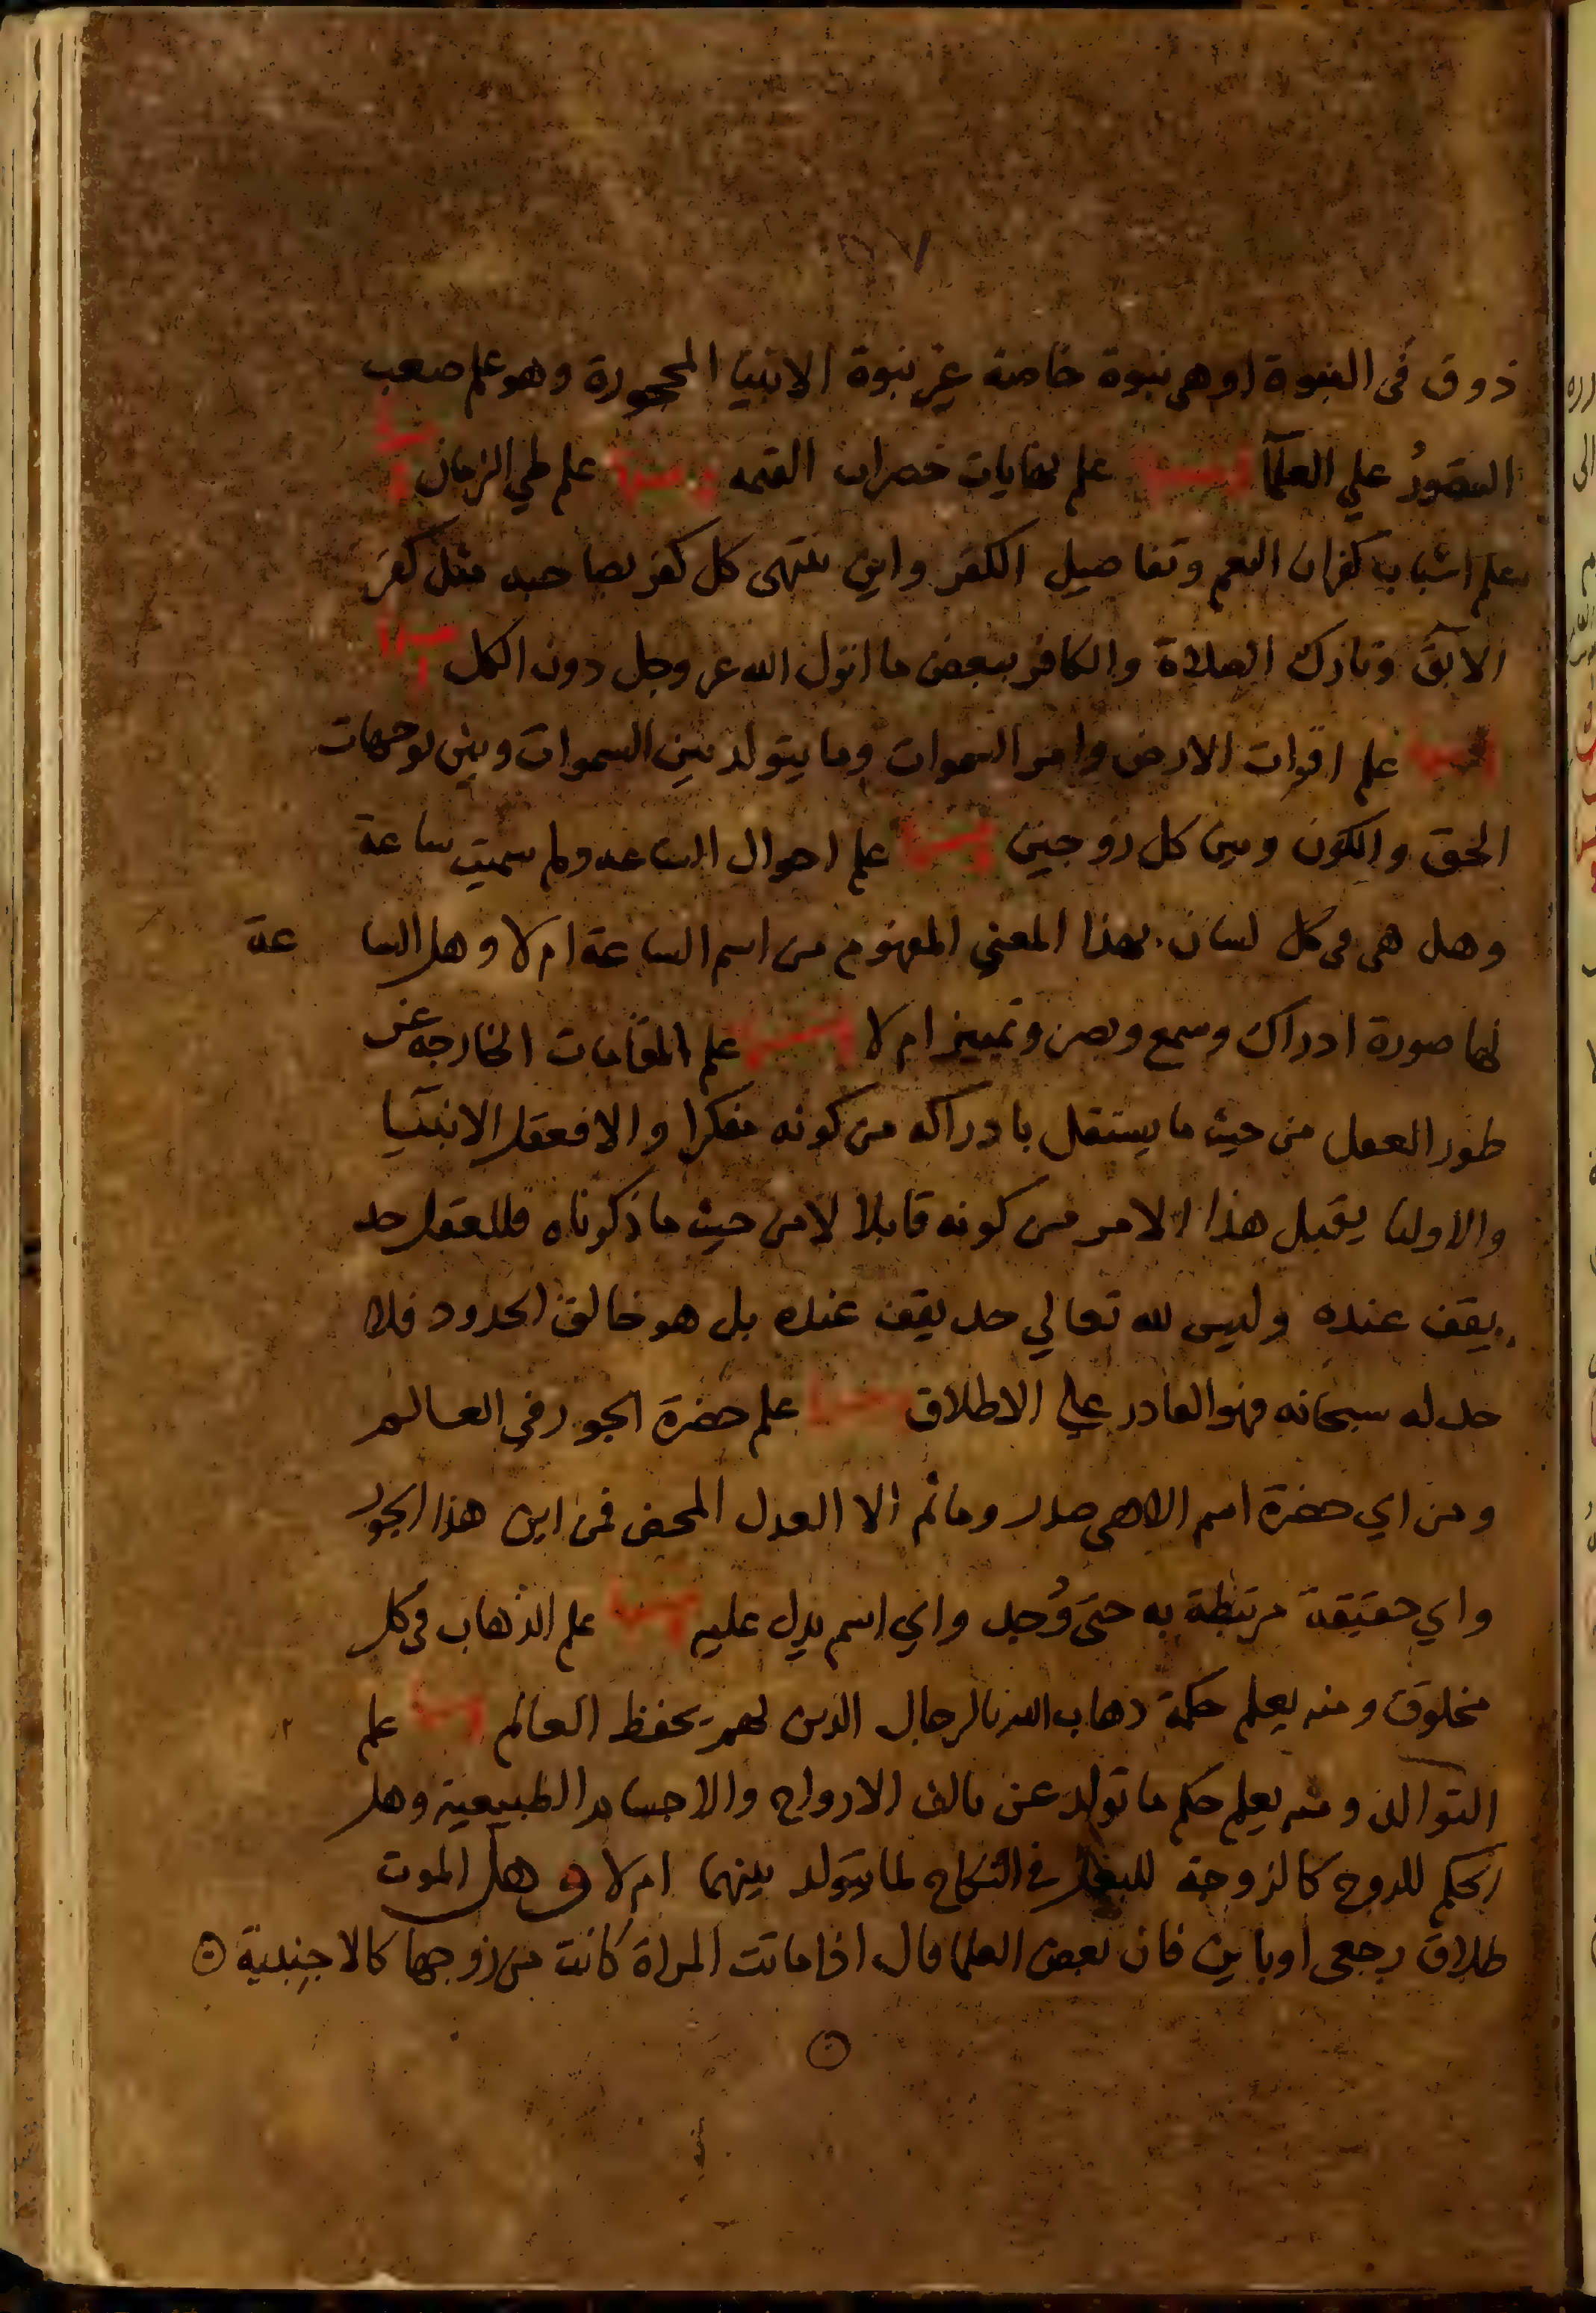 ذوق فى النبوة او هى نبوة خاصة غير نبوة الانبيا المحجورة وهو علم صعب
التصور علي العلمآ ومنها علم نهايات حضرات القيمه ومنها علم طي الزمان ومنها
علم اسباب كفران النعم وتفاصيل الكفر واين ينتهى كل كفر بصاحبه مثل كفر
الآبق وتارك الصلاة والكافر ببعض ما انزل الله عز وجل دون الكل
ومنها علم اقوات الارض وامر السموات وما يتولد بين السموات وبين توجهات
الحق والكون وبين كل زوجين ومنها علم احوال الساعه ولم سميت ساعة
وهل هى فى كل لسان بهذا المعني المفهوم من اسم الساعة ام لا وهل الساعة
لها صورة ادراك وسمع وبصر وتمييز ام لا ومنها علم المقامات الخارجه عن
طور العقل من حيث ما يستقل بادراكه من كونه مفكرا والا فعقل الانبيآ
والاوليا يقبل هذا الامر من كونه قابلا لا من حيث ما ذكرناه فللعقل حد
يقف عنده وليس لله تعالي حد يقف عنده بل هو خالق الحدود فلا
حد له سبحانه فهو القادر علي الاطلاق ومنها علم حضرة الجور فى العالم
ومن اي حضرة اسم الاهى صدر وما ثم الا العدل المحض فمن اين هذا الجور
واي حقيقة مرتبطة به حتى وُجد واي اسم يدل عليه ومنها علم الذهاب فى كل
مخلوق ومنه يعلم حكمة ذهاب الله بالرجال الذين بهم يحفظ العالم ومنها علم
التوالد ومنه يعلم حكم ما تولد عن تالف الارواح والاجساد الطبيعية وهل
الحكم للروح كالزوجة للبعل فى النكاح لما يتولد بينهما ام لا وهل الموت
طلاق رجعى او باين فان بعض العلما قال اذا ماتت المراة كانت من زوجها كالاجنبية